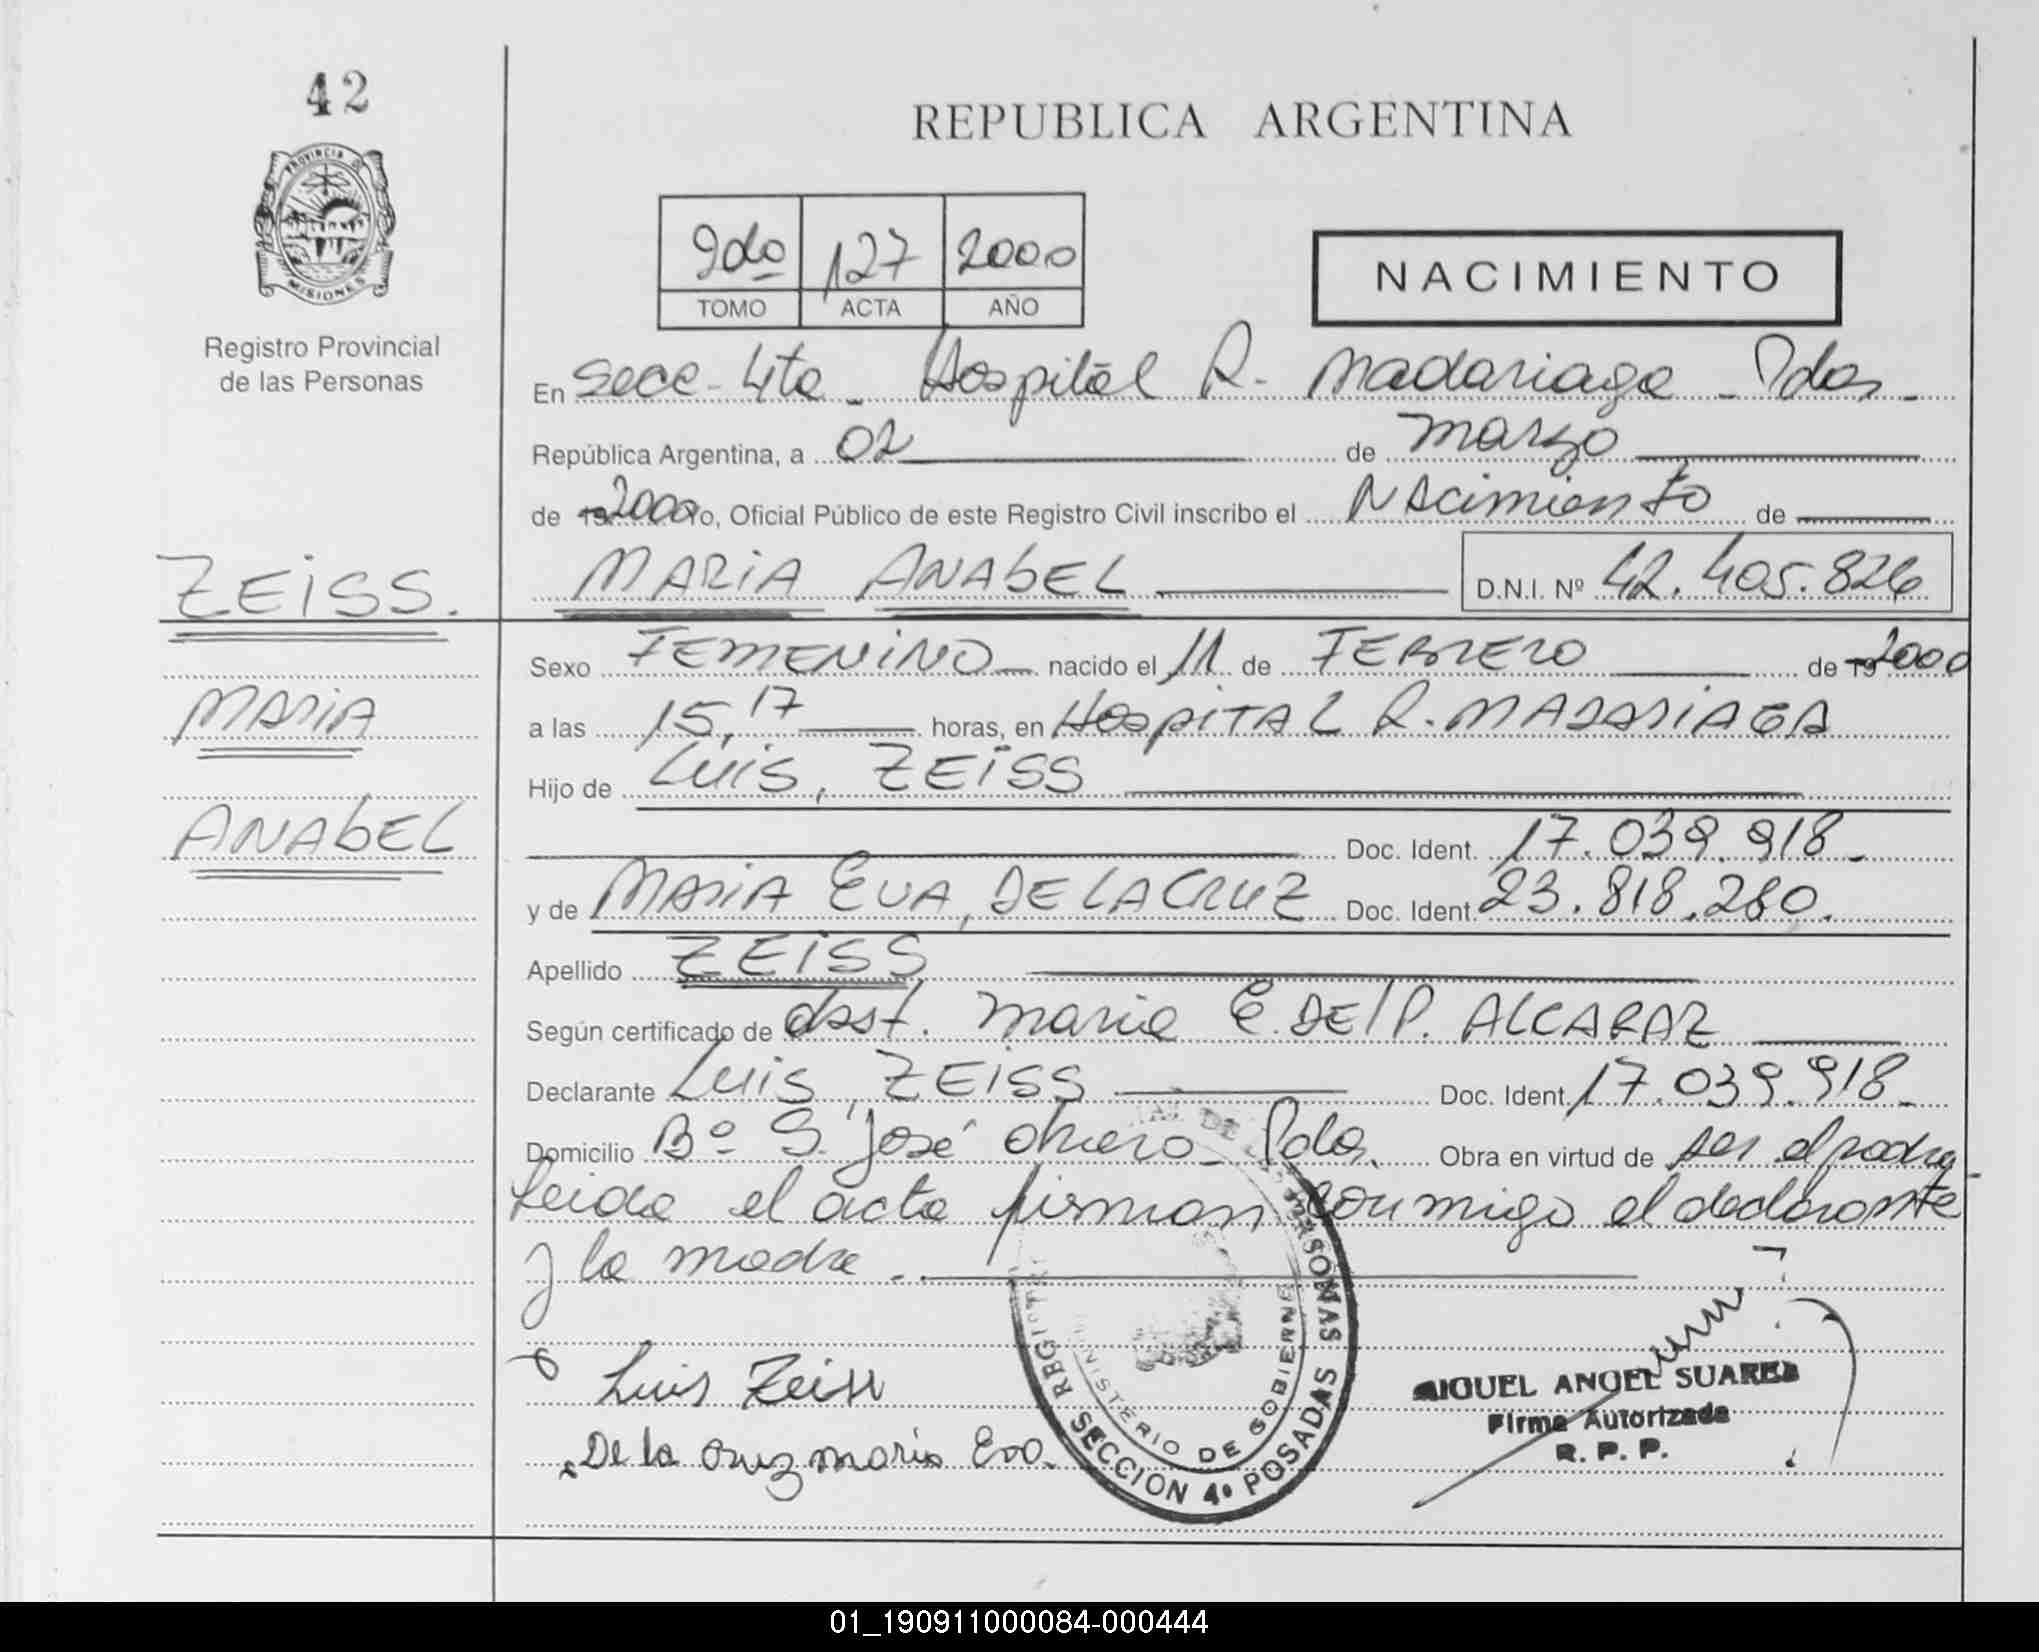 42
REPUBLICA ARGENTINA
PROVINCIA DE
MISIONES
Registro Provincial
de las Personas
2do 127 2000
TOMO ACTA AÑO
NACIMIENTO
En Secc. 4ta - Hospital R. Madariaga - Pdas -
República Argentina, a 02 de marzo
de 2000 yo, Oficial Público de este Registro Civil inscribo el Nacimiento de
MARIA ANABEL D.N.I. Nº 42.405.826
ZEISS.
MARIA
ANABEL
Sexo FEMENINO nacido el 11 de FEBRERO de 19 2000
a las 15,17 horas, en HOSPITAL R. MADARIAGA
Hijo de Luis, ZEISS
Doc. Ident. 17.039.918.
y de MARIA EVA, DE LA CRUZ Doc. Ident. 23.818.280.
Apellido ZEISS
Según certificado de obst. Maria E. DEL P. ALCARAZ
Declarante Luis, ZEISS Doc. Ident. 17.039.918.
Domicilio Bº S. José Obrero - Pdas. Obra en virtud de ser el padre
Leida el acta firman conmigo el declarante
y la madre.
Luis Zeiss
De la Cruz maria Eva.
MINISTERIO DE GOBIERNO
SECCION 4º POSADAS MISIONES
MIGUEL ANGEL SUAREZ
Firma Autorizada
R. P. P.
01_190911000084-000444